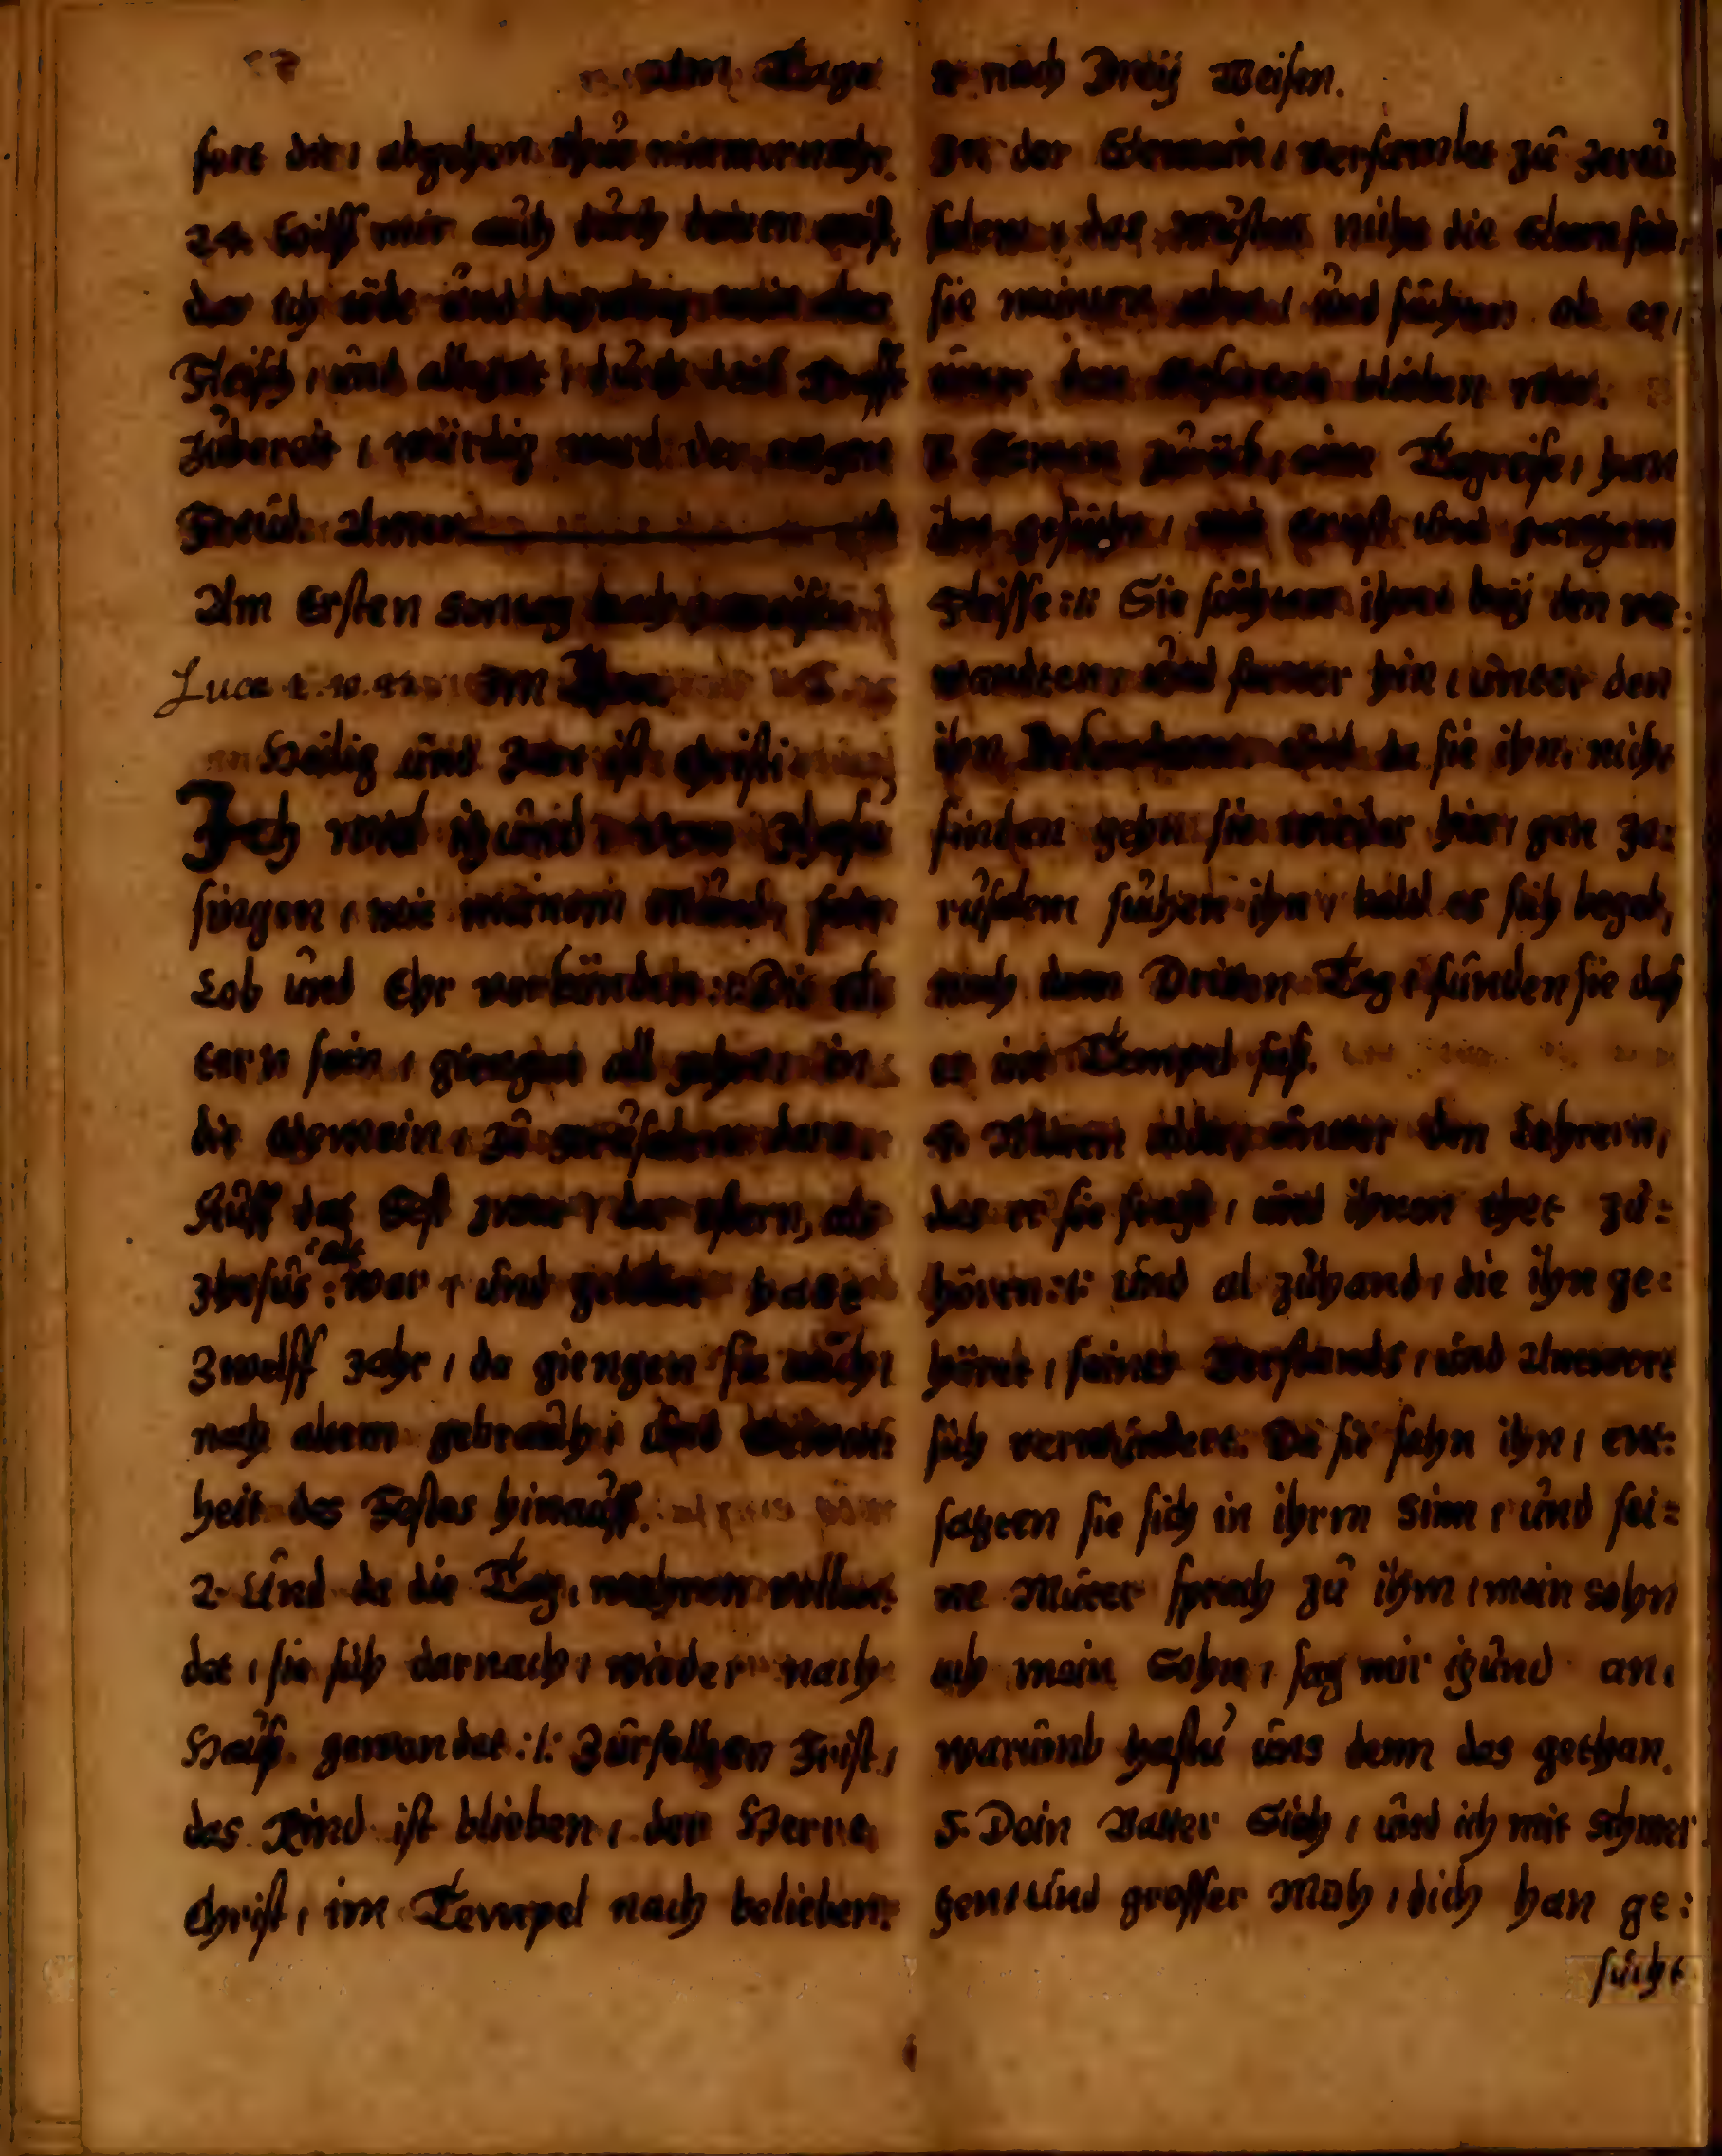 Am Tage
fort die, abgehen thut nimmermehr.
24. Hilff mir auch durch deinen geist,
das ich töde und bezwing mein
Fleisch, und allezeit, durch dein Krafft
zubereit, würdig werd der ewgen
Freud. Amen
Am Ersten Sontag nach
Luca 2. v. 42. Im Thon.
Heilig und Zart ist Christi
Ich wil itzund von Jhesu
singen, mit meinem Mund, sein
Lob und Ehr verkünden :/: Die el-
tern sein, giengen all Jahre, in
die Gemein, zu Jerusalem dare.
Auff das Fest zwar, der ostern, als
Jhesus alt war, und
Zwelff Jahr, da giengen sie auch,
nach altem gebrauch, und Gewon-
heit des Festes hinauff.
2. Und da die Tag, wahren vollen-
det, sie sich darnach, wieder nach
Hauß gewendet :/: Zur selben Frist,
das Kind ist blieben, der Herre
Christ, im Tempel nach belieben.
nach Dreÿ Weisen.
In der Gemein, versamlet zu Jeru-
salem, das wusten nicht die eltern sein,
sie meinten, und ob er,
unter den Geferten blieben wer.
3. Kamen zurück, eine Tagreise, han
ihn gesucht, mit und gantzem
Fleisse :/: Sie suchten ihn beÿ den ver-
wandten, und ferner hin, unter den
ihn Bekandten. Und da sie ihn nicht
finden gehn sie wieder hin, gen Je-
rusalem suchen ihn, bald es sich begab,
nach dem Dritten Tag, funden sie daß
er im Tempel saß.
4. Mitten unter den Lehrern,
das er sie fragt, und ihnen thet zu-
hören :/: und al zuhand, die ihn ge-
höret, seines Verstands, und Antwort
sich verwundert. Da sie sahn ihn, ent-
satzten sie sich in ihrm Sinn, und sei-
ne Muter sprach zu ihm, mein sohn
ach mein Sohn, sag mir itzund an,
warumb hastu uns denn das gethan.
5. Dein Vatter Sich, und ich mit schmer-
tzen, und grosser Müh, dich han ge-
sucht